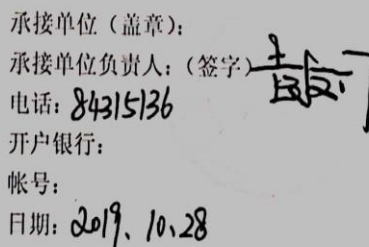 承接单位（盖章）：
承接单位负责人：（签字）
电话：84315136
开户银行：
帐号：
日期：2019、10、28